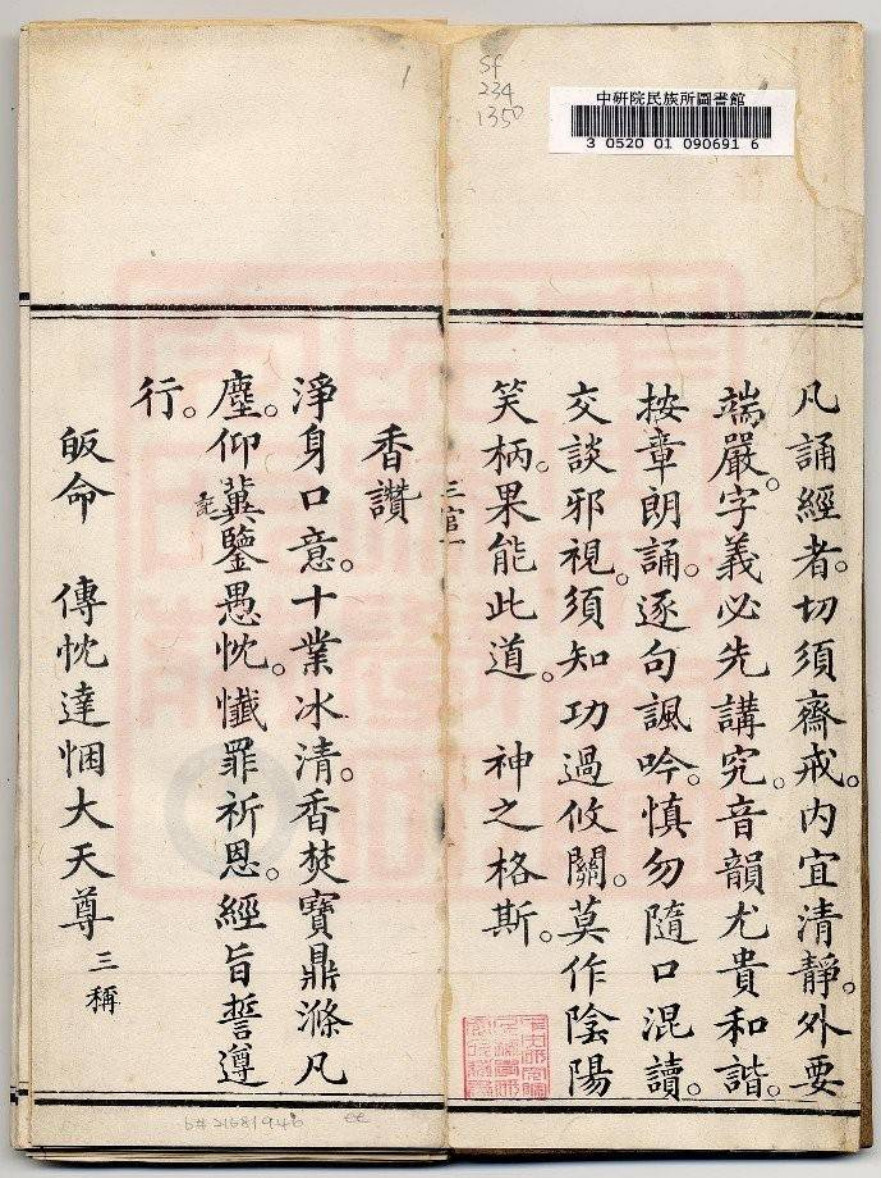 1
Sf
234
1350
中研院民族所圖書館
3 0520 01 090691 6
凡誦經者。切須齋戒。内宜清靜。外要
端嚴。字義必先講究。音韻尤貴和諧。
按章朗誦。逐句諷吟。慎勿隨口混讀。
交談邪視。須知功過攸關。莫作陰陽
笑柄。果能此道。神之格斯。
三官一
香讚
淨身口意。十業冰清。香焚寶鼎滌凡
塵。仰冀鑒愚忱。懺罪祈恩。經旨誓遵
行。
皈命 傳忱達悃大天尊三稱
b# 21681946